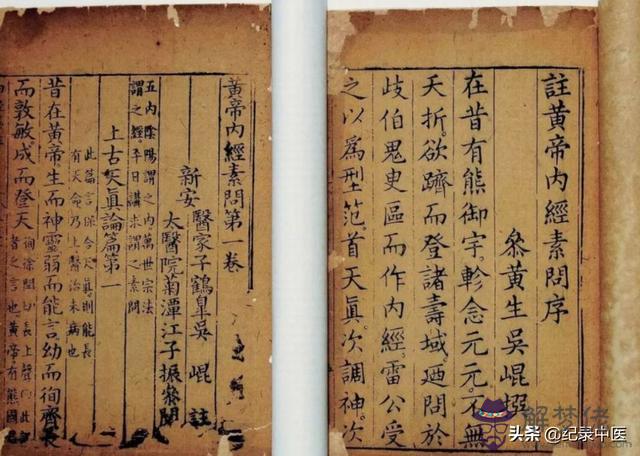 註黃帝內經素問序
叅黃生吳崐撰
在昔有熊御宇。軫念元元。不無
夭折。欲躋而登諸壽域。廼問於
歧伯鬼史區而作內經。雷公受
之以爲型范。首天眞。次調神。次
黃帝內經素問第一卷
新安
醫家子鶴皐吳 崐 註
太醫院菊潭江子振叅閱
五內陰陽謂之內萬世宗法
謂之經平日講求謂之素問
上古天眞論篇第一
此篇言保合天眞則能長
有天命乃上醫治未病也
昔在黃帝。生而神靈。弱而能言。幼而徇齊。長
而敦敏。成而登天。
者之言也。黃帝。有熊國
头条 @纪录中医